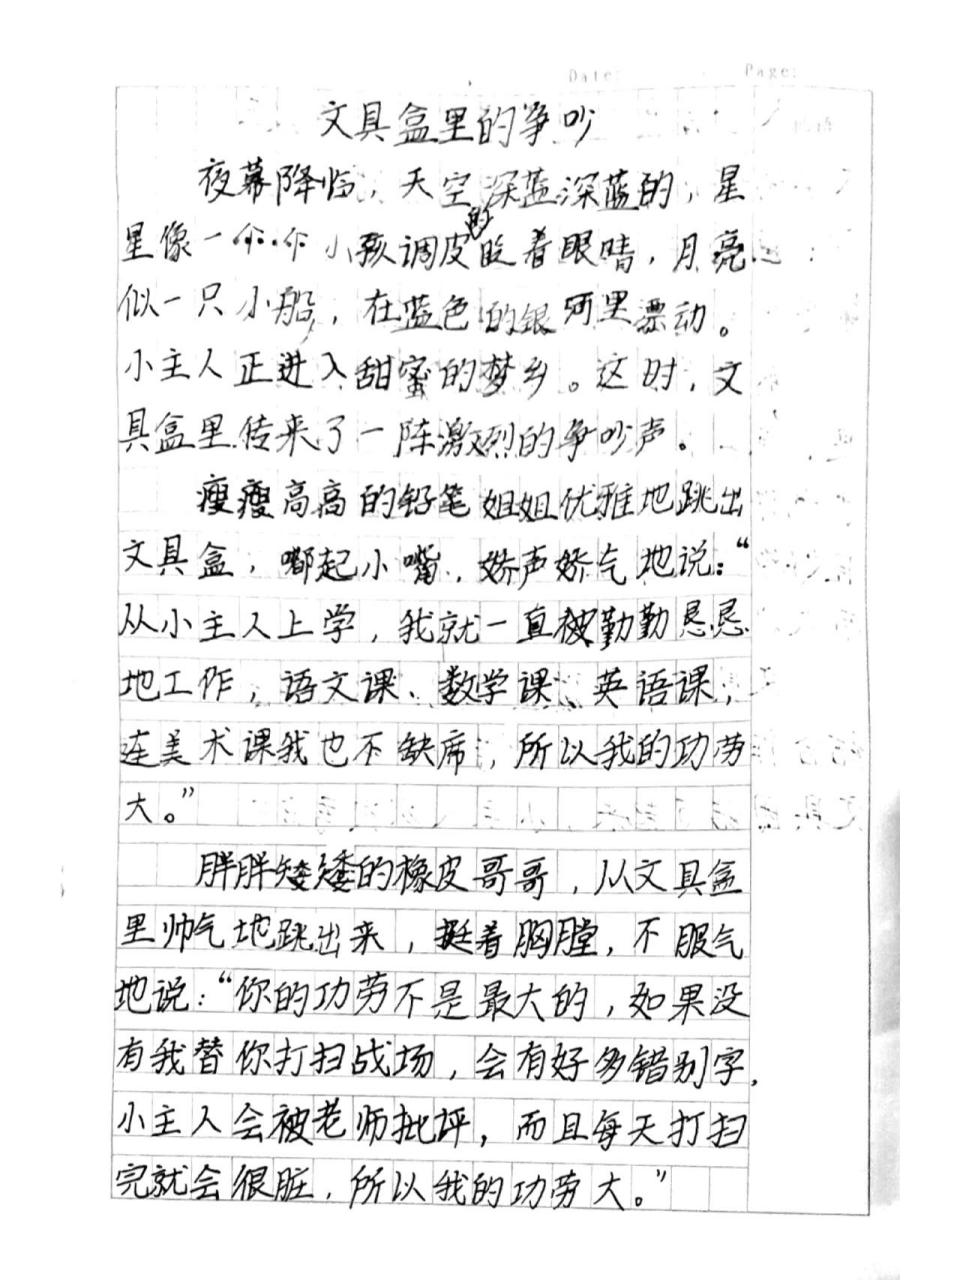 Date: Page:
文具盒里的争吵
夜幕降临，天空深蓝深蓝的，星
星像一个个小孩调皮的眨着眼睛，月亮
似一只小船，在蓝色的银河里漂动。
小主人正进入甜蜜的梦乡。这时，文
具盒里传来了一阵激烈的争吵声。
瘦瘦高高的铅笔姐姐优雅地跳出
文具盒，嘟起小嘴，娇声娇气地说：“
从小主人上学，我就一直被勤勤恳恳
地工作，语文课、数学课、英语课，
连美术课我也不缺席，所以我的功劳
大。”
胖胖矮矮的橡皮哥哥，从文具盒
里帅气地跳出来，挺着胸膛，不服气
地说：“你的功劳不是最大的，如果没
有我替你打扫战场，会有好多错别字，
小主人会被老师批评，而且每天打扫
完就会很脏，所以我的功劳大。”